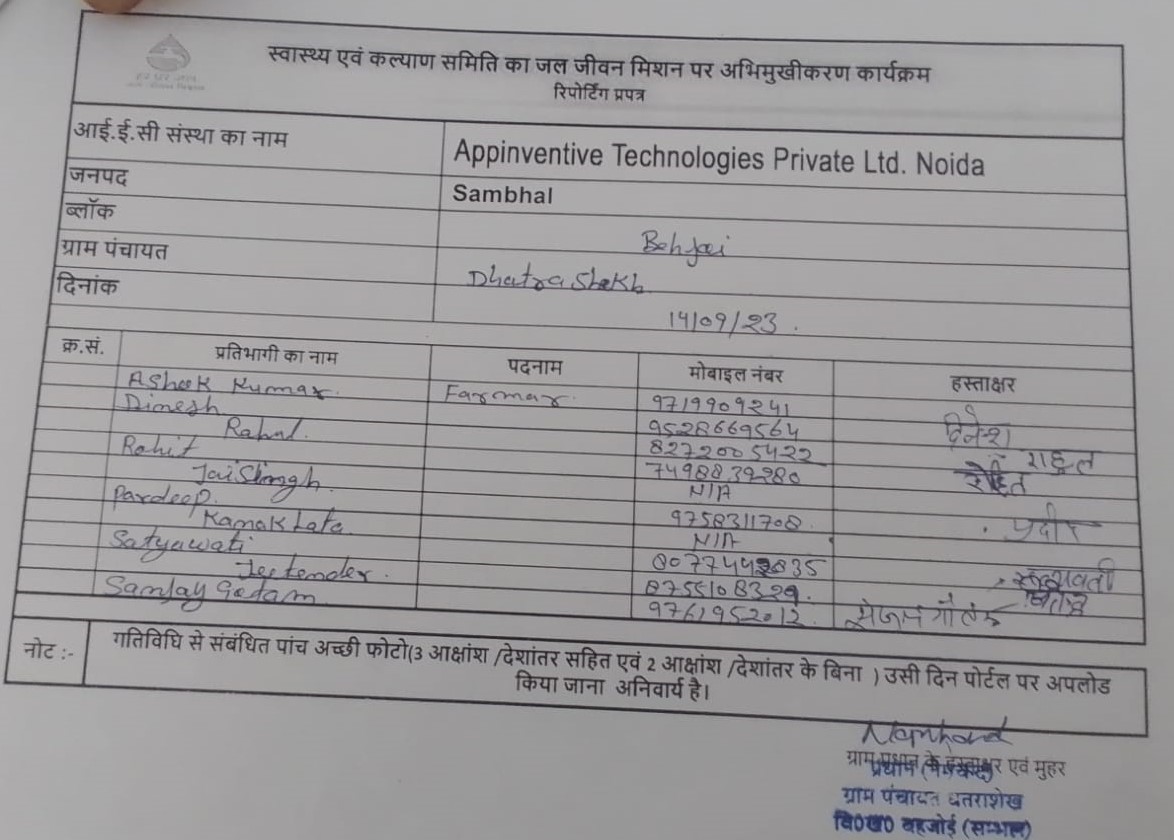 स्वास्थ्य एवं कल्याण समिति का जल जीवन मिशन पर अभिमुखीकरण कार्यक्रम
रिपोर्टिंग प्रपत्र
आई.ई.सी संस्था का नाम Appinventive Technologies Private Ltd. Noida
जनपद Sambhal
ब्लॉक Behjoi
ग्राम पंचायत Dhatra Shekh
दिनांक 14/09/23.
क्र.सं. प्रतिभागी का नाम पदनाम मोबाइल नंबर हस्ताक्षर
Ashok Kumar Farmar 9719909241
Dinesh 9528669564 दिनेश
Rahul 8272005422 राहुल
Rohit 7498839280 रोहित
Jai Singh N/A
Pardeep 9758311708
Kamak Lata N/A
Satyawati सत्यवती
Jeetender 8755108329
Sanjay Gotam 9761952012
नोट :- गतिविधि से संबंधित पांच अच्छी फोटो(3 आक्षांश /देशांतर सहित एवं 2 आक्षांश /देशांतर के बिना ) उसी दिन पोर्टल पर अपलोड
किया जाना अनिवार्य है।
ग्राम प्रधान के हस्ताक्षर एवं मुहर
ग्राम पंचायत धतराशेख
वि०ख० बहजोई (सम्भल)